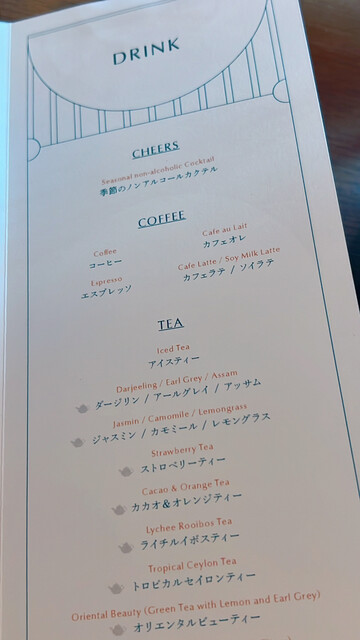 DRINK
CHEERS
Seasonal non-alcoholic Cocktail
季節のノンアルコールカクテル
COFFEE
Coffee
コーヒー
Cafe au Lait
カフェオレ
Espresso
エスプレッソ
Cafe Latte / Soy Milk Latte
カフェラテ / ソイラテ
TEA
Iced Tea
アイスティー
Darjeeling / Earl Grey / Assam
ダージリン / アールグレイ / アッサム
Jasmin / Camomile / Lemongrass
ジャスミン / カモミール / レモングラス
Strawberry Tea
ストロベリーティー
Cacao & Orange Tea
カカオ&オレンジティー
Lychee Rooibos Tea
ライチルイボスティー
Tropical Ceylon Tea
トロピカルセイロンティー
Oriental Beauty (Green Tea with Lemon and Earl Grey)
オリエンタルビューティー